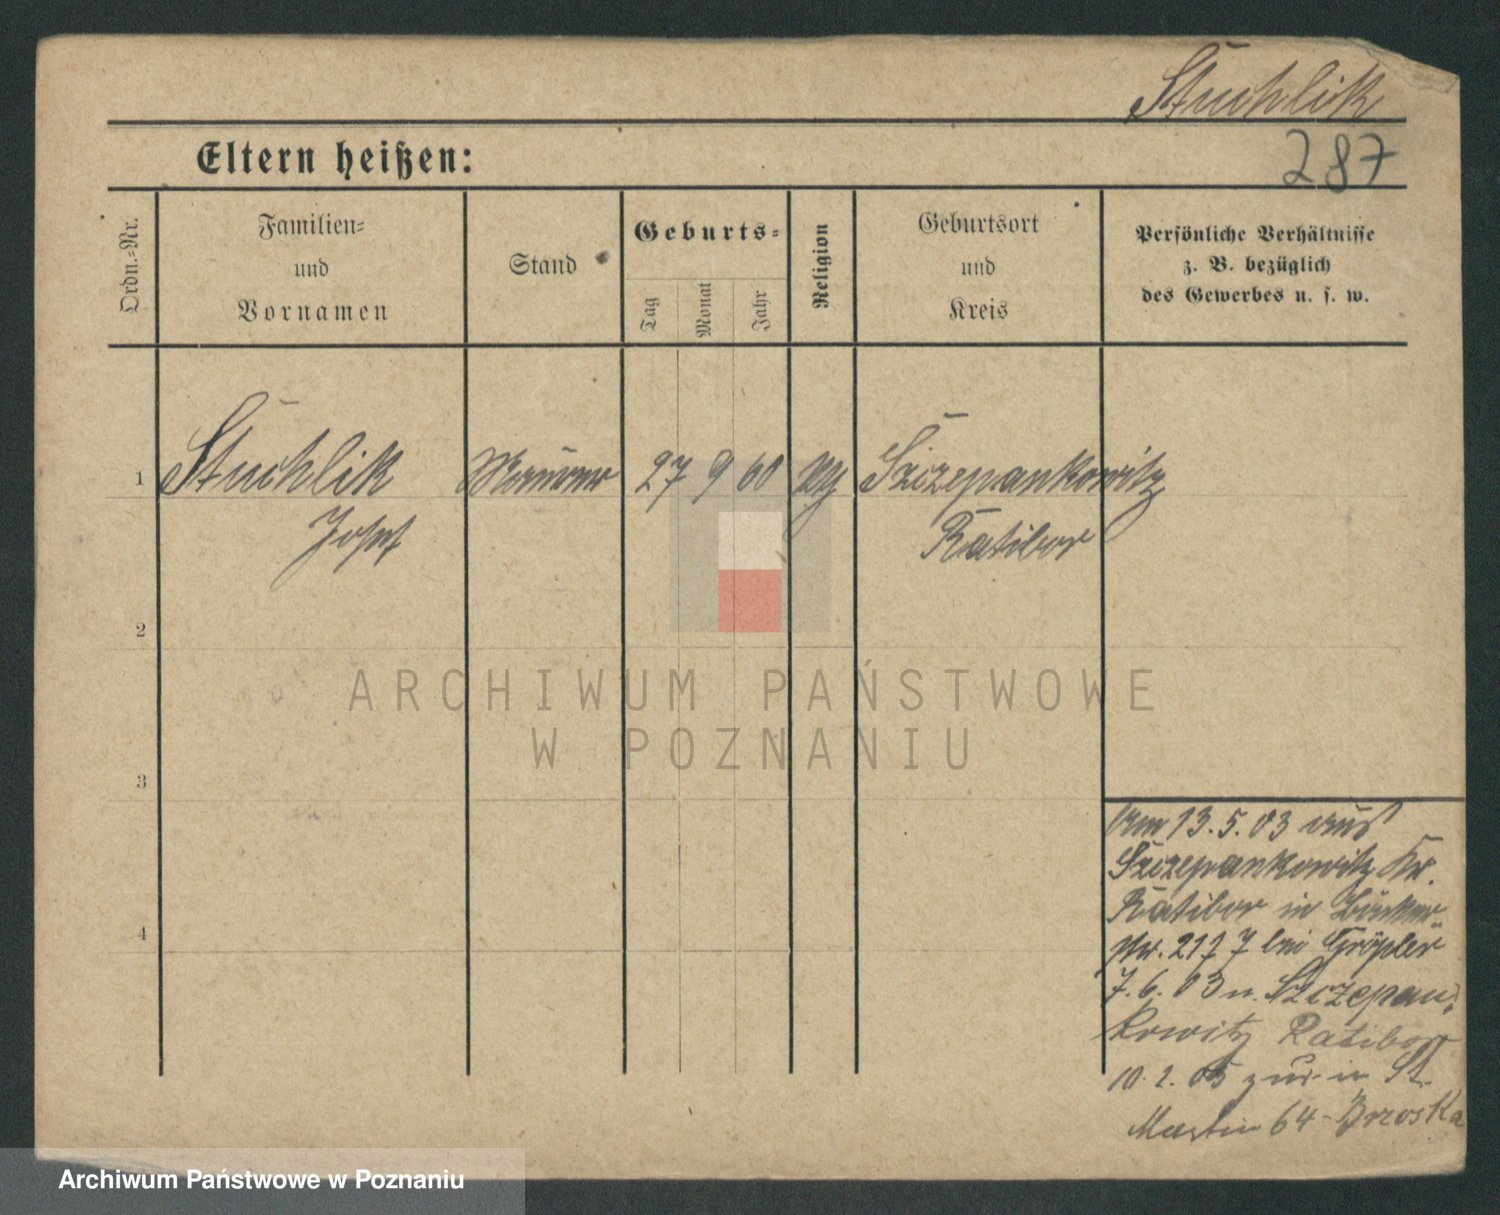 Stuchlik
Eltern heißen:
287
Ordn.-Nr.
Familien-
und
Vornamen
Stand
Geburts-
Tag
Monat
Jahr
Religion
Geburtsort
und
Kreis
Persönliche Verhältnisse
z. B. bezüglich
des Gewerbes u. s. w.
1 Stuchlik Maurer 27 9 60 Szczepankowitz
Josef Ratibor
2
3
4
13.5.03 aus
Szczepankowitz Kr.
Ratibor in
bei
7.6.03 n. Szczepan-
kowitz Ratibor
10.2.05 zur. in St.
Martin 64 - Brzoska
ARCHIWUM PAŃSTWOWE
W POZNANIU
Archiwum Państwowe w Poznaniu